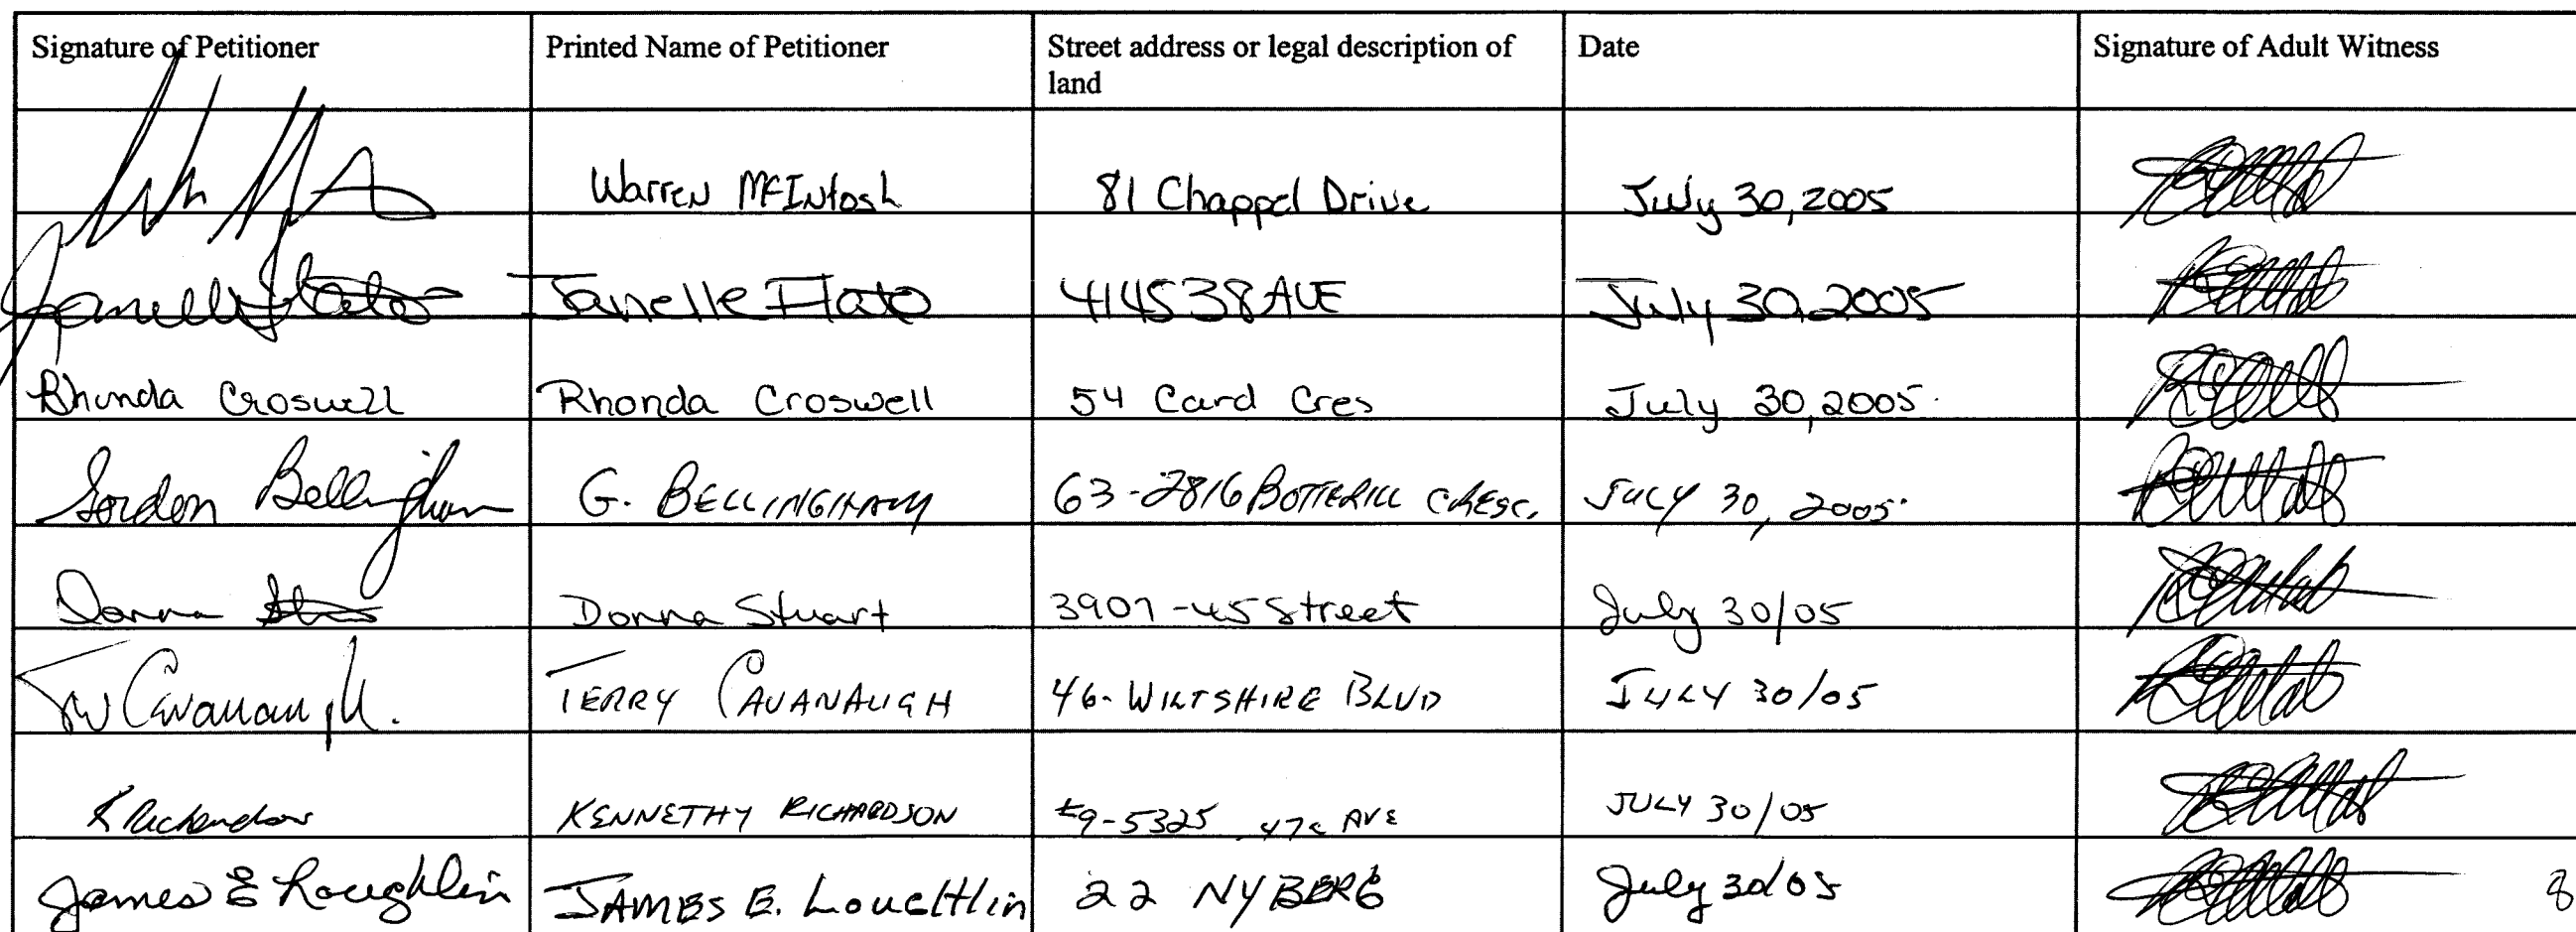 Signature of Petitioner Printed Name of Petitioner Street address or legal description of land Date Signature of Adult Witness
Warren McIntosh 81 Chappel Drive July 30, 2005
Janelle Flato Janelle Flato 4145 38 AVE July 30, 2005
Rhonda Croswell Rhonda Croswell 54 Card Cres July 30, 2005
Gordon Bellingham G. BELLINGHAM 63-2816 BOTTERILL CRESC. JULY 30, 2005
Donna Donna Stuart 3907-45 Street July 30/05
TW Cavanaugh. TERRY CAVANAUGH 46-WILTSHIRE BLVD JULY 30/05
K Richardson KENNETHY RICHARDSON #9-5325 47c AVE JULY 30/05
James E Loughlin JAMES E. LougHlin 22 NYBERG July 30/05
8